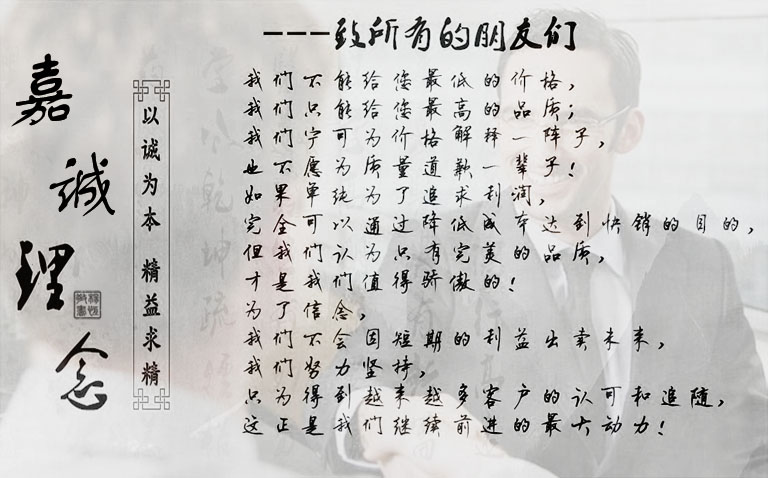 嘉诚理念
以诚为本 精益求精
---致所有的朋友们
我们不能给您最低的价格，
我们只能给您最高的品质；
我们宁可为价格解释一阵子，
也不愿为质量道歉一辈子！
如果单纯为了追求利润，
完全可以通过降低成本达到快销的目的，
但我们认为只有完美的品质，
才是我们值得骄傲的！
为了信念，
我们不会因短期的利益出卖未来，
我们努力坚持，
只为得到越来越多客户的认可和追随，
这正是我们继续前进的最大动力！